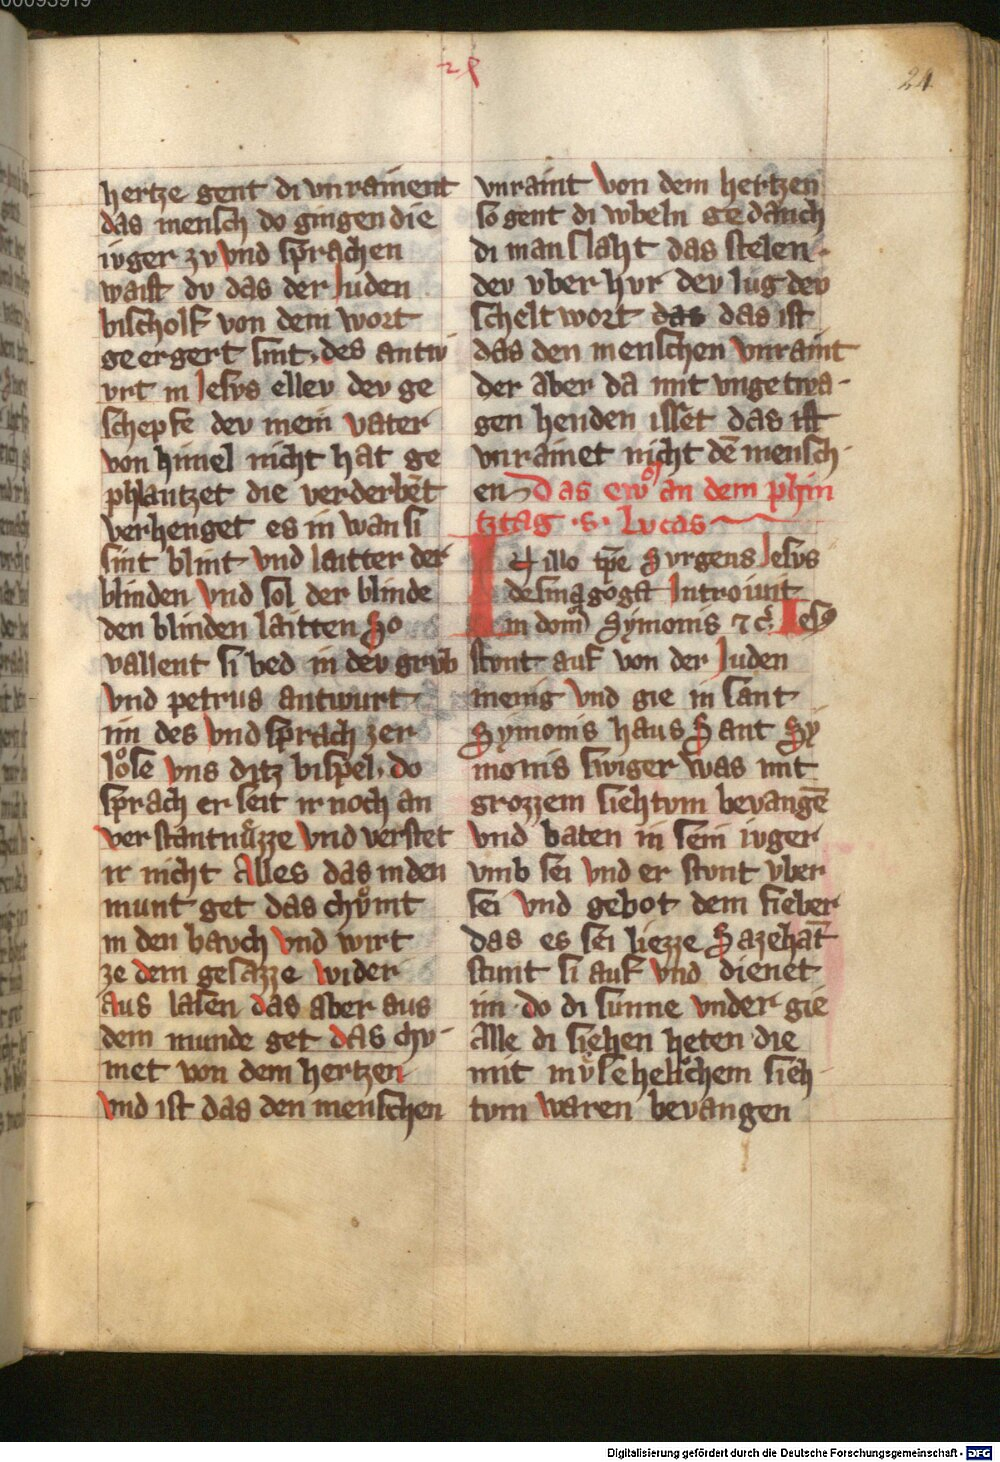 24
hertze gent di vnrainent
das mensch do gingen die
ivger zv vnd sprachen
waist dv das der Juden
bischolf von dem wort
geergert sint. des antw
vrt in Jesvs ellev dev ge
schepfe dev mein vater
von himel nicht hat ge
phlantzet die verderbēt
verhenget es in wan si
sint blint vnd laitter der
blinden vnd sol der blinde
den blinden laitten So
vallent si bed in dev grvb
vnd petrus antwurt
im des vnd sprach zer
loͤse vns ditz bispel. do
sprach er seit ir noch an
verstantnuͤzze vnd verstet
ir nicht Alles das in den
munt get das chuͤmt
in den bavch vnd wirt
ze dem gesazze wider
aus lasen das aber aus
dem munde get das chv-
met von dem hertzen
vnd ist das den menschen
vnraint von dem hertzen
so gent di wbeln gedanch
di manslaht das stelen.
dev vberhvr dev lug dev
scheltwort das das ist
das den menschen vnraint
der aber da mit vngetwa-
gen henden isset das ist
vnrainet nicht dē mensch-
en Das ewo an dem phin
tztag .s. Lvcas
In illo tp̄e Svrgens Jesvs
de sinagoga Introiuit
in domū Symonis ⁊ cͬ. Jesꝰ
stvnt auf von der Juden
menig vnd gie in sant
Symonis haus Sant Sy
monis swiger was mit
grozzem siehtvm bevangē
vnd baten in sein ivger
vmb sei vnd er stvnt vber
sei vnd gebot dem fieber
das es sei liezze Sazehāt
stunt si auf vnd dienet
im. do di sunne vnder gie
Alle di siehen heten die
mit mvͤsehelichem sieh
tvm waren bevangen
Digitalisierung gefördert durch die Deutsche Forschungsgemeinschaft - DFG